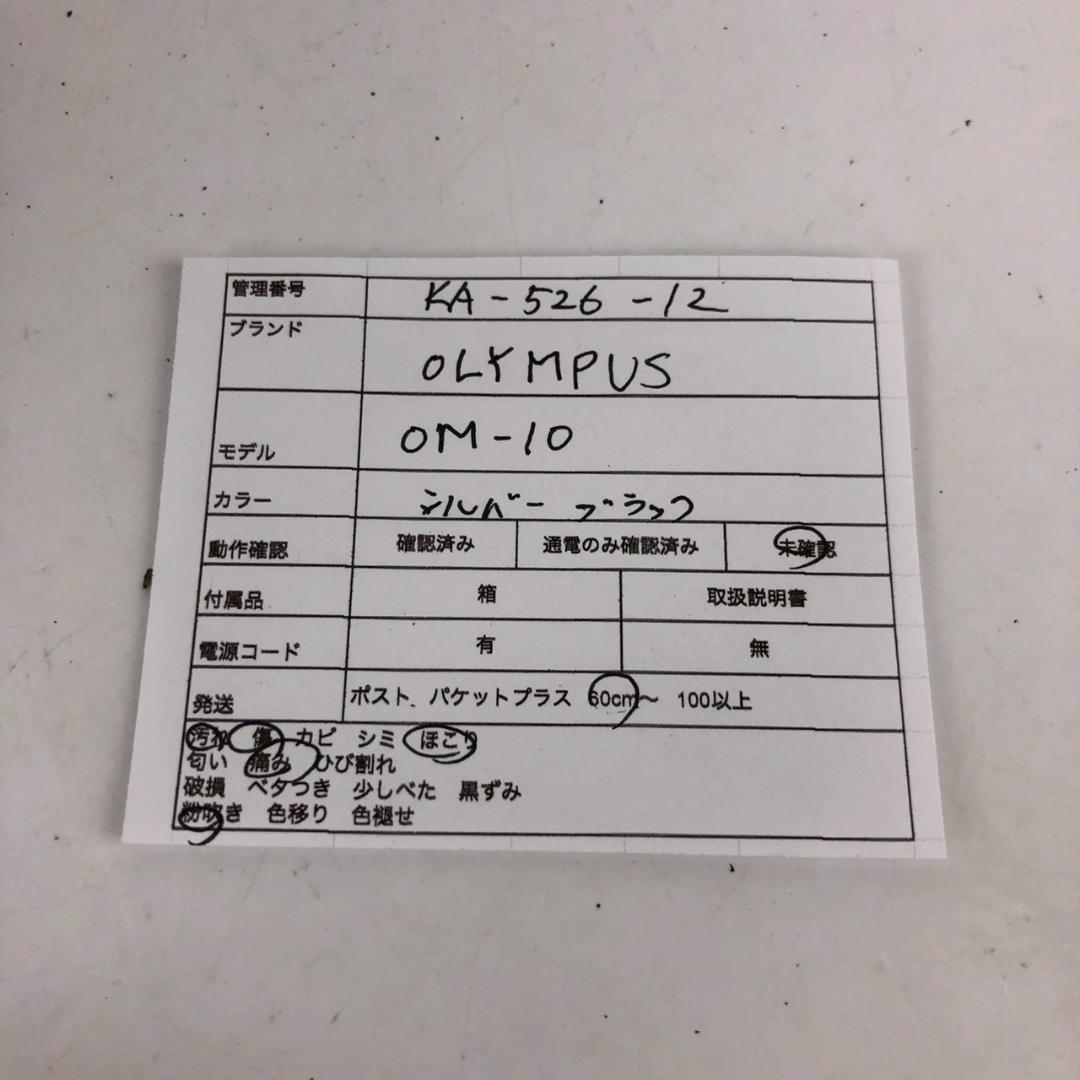 管理番号 KA-526-12
ブランド OLYMPUS
モデル OM-10
カラー シルバー ブラック
動作確認 確認済み 通電のみ確認済み 未確認
付属品 箱 取扱説明書
電源コード 有 無
発送 ポスト、パケットプラス 60cm〜 100以上
汚れ 傷 カビ シミ ほこり
匂い 痛み ひび割れ
破損 ベタつき 少しべた 黒ずみ
粉吹き 色移り 色褪せ